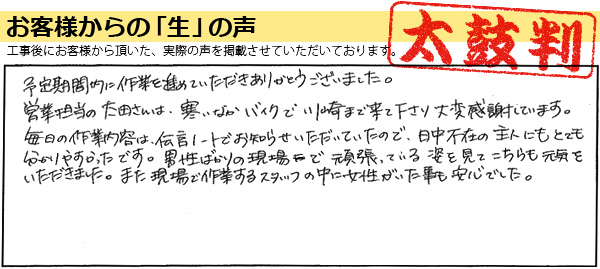 お客様からの「生」の声
工事後にお客様から頂いた、実際の声を掲載させていただいております。
太鼓判
予定期間内に作業を進めていただきありがとうございました。
営業担当の太田さんは、寒いなかバイクで川崎まで来て下さり大変感謝しています。
毎日の作業内容は、伝言ノートでお知らせいただいていたので、日中不在の主人にもとても
分かりやすかったです。男性ばかりの現場で頑張っている姿を見てこちらも元気を
いただきました。また現場で作業するスタッフの中に女性がいた事も安心でした。